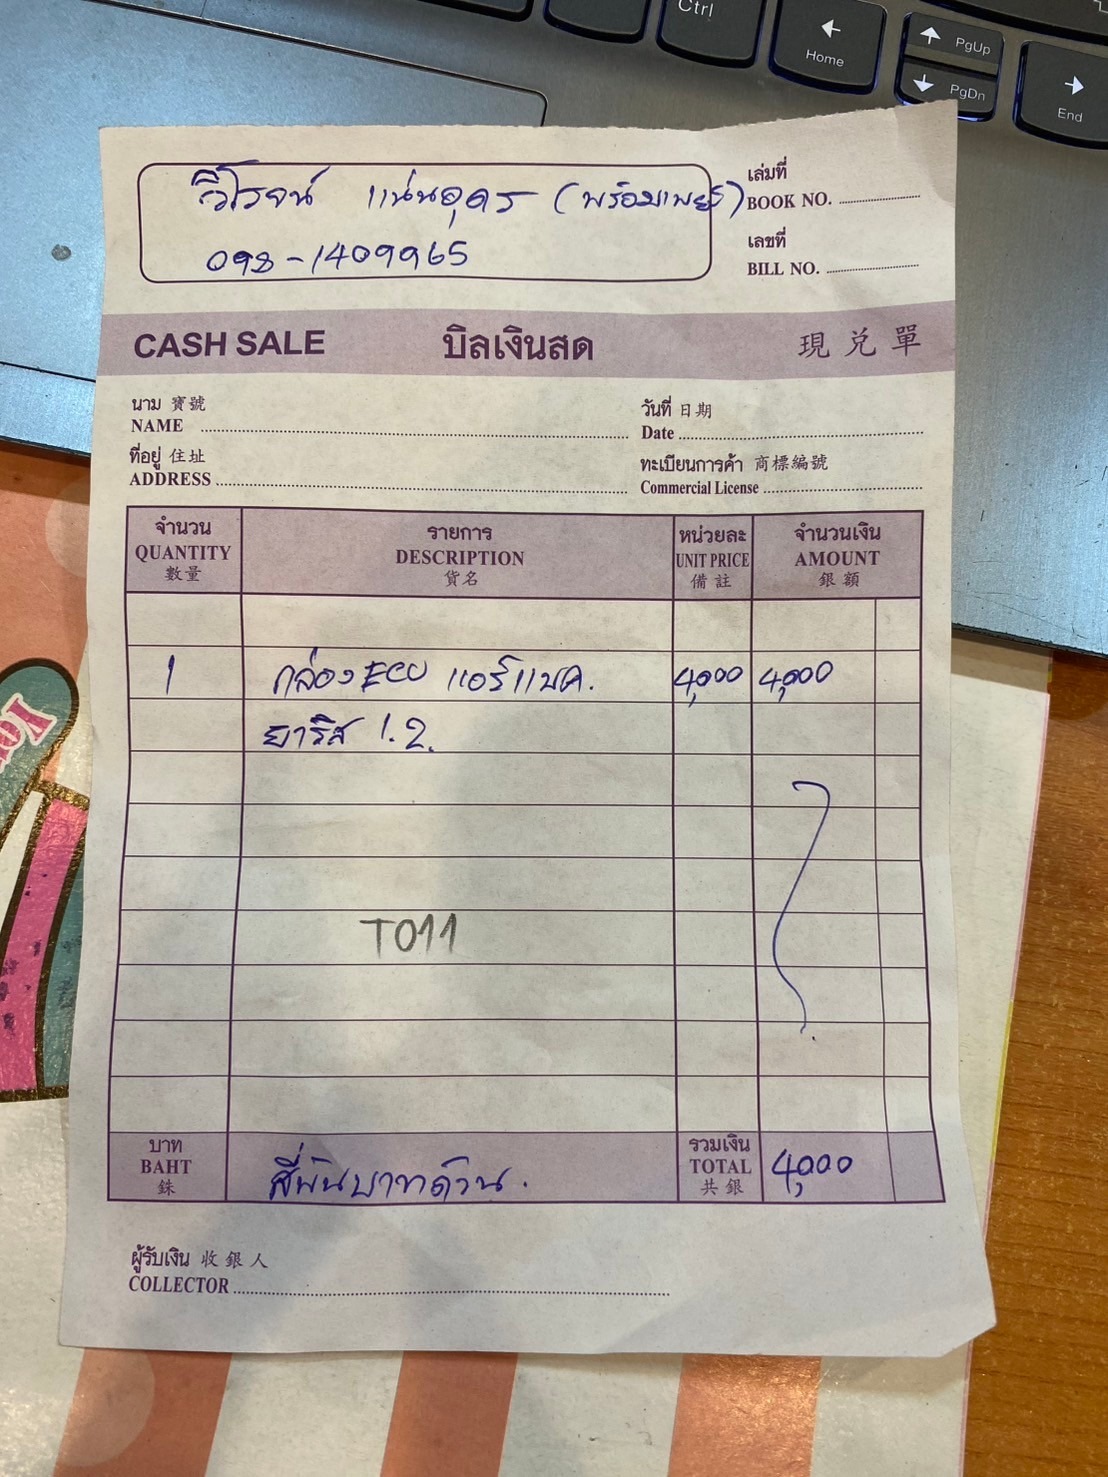 Ctrl
Home
PgUp
PgDn
End
วิโรจน์ แน่นอุดร (พร้อมเพย์)
098-1409965
เล่มที่
BOOK NO.
เลขที่
BILL NO.
CASH SALE บิลเงินสด 現兌單
นาม 寶號
NAME
วันที่ 日期
Date
ที่อยู่ 住址
ADDRESS
ทะเบียนการค้า 商標編號
Commercial License
จำนวน
QUANTITY
數量
รายการ
DESCRIPTION
貨名
หน่วยละ
UNIT PRICE
備註
จำนวนเงิน
AMOUNT
銀額
1 กล่องECU แอร์แบค. 4,000 4,000
ยาริส 1.2.
T011
บาท
BAHT
銖
สี่พันบาทถ้วน.
รวมเงิน
TOTAL
共銀
4,000
ผู้รับเงิน 收銀人
COLLECTOR